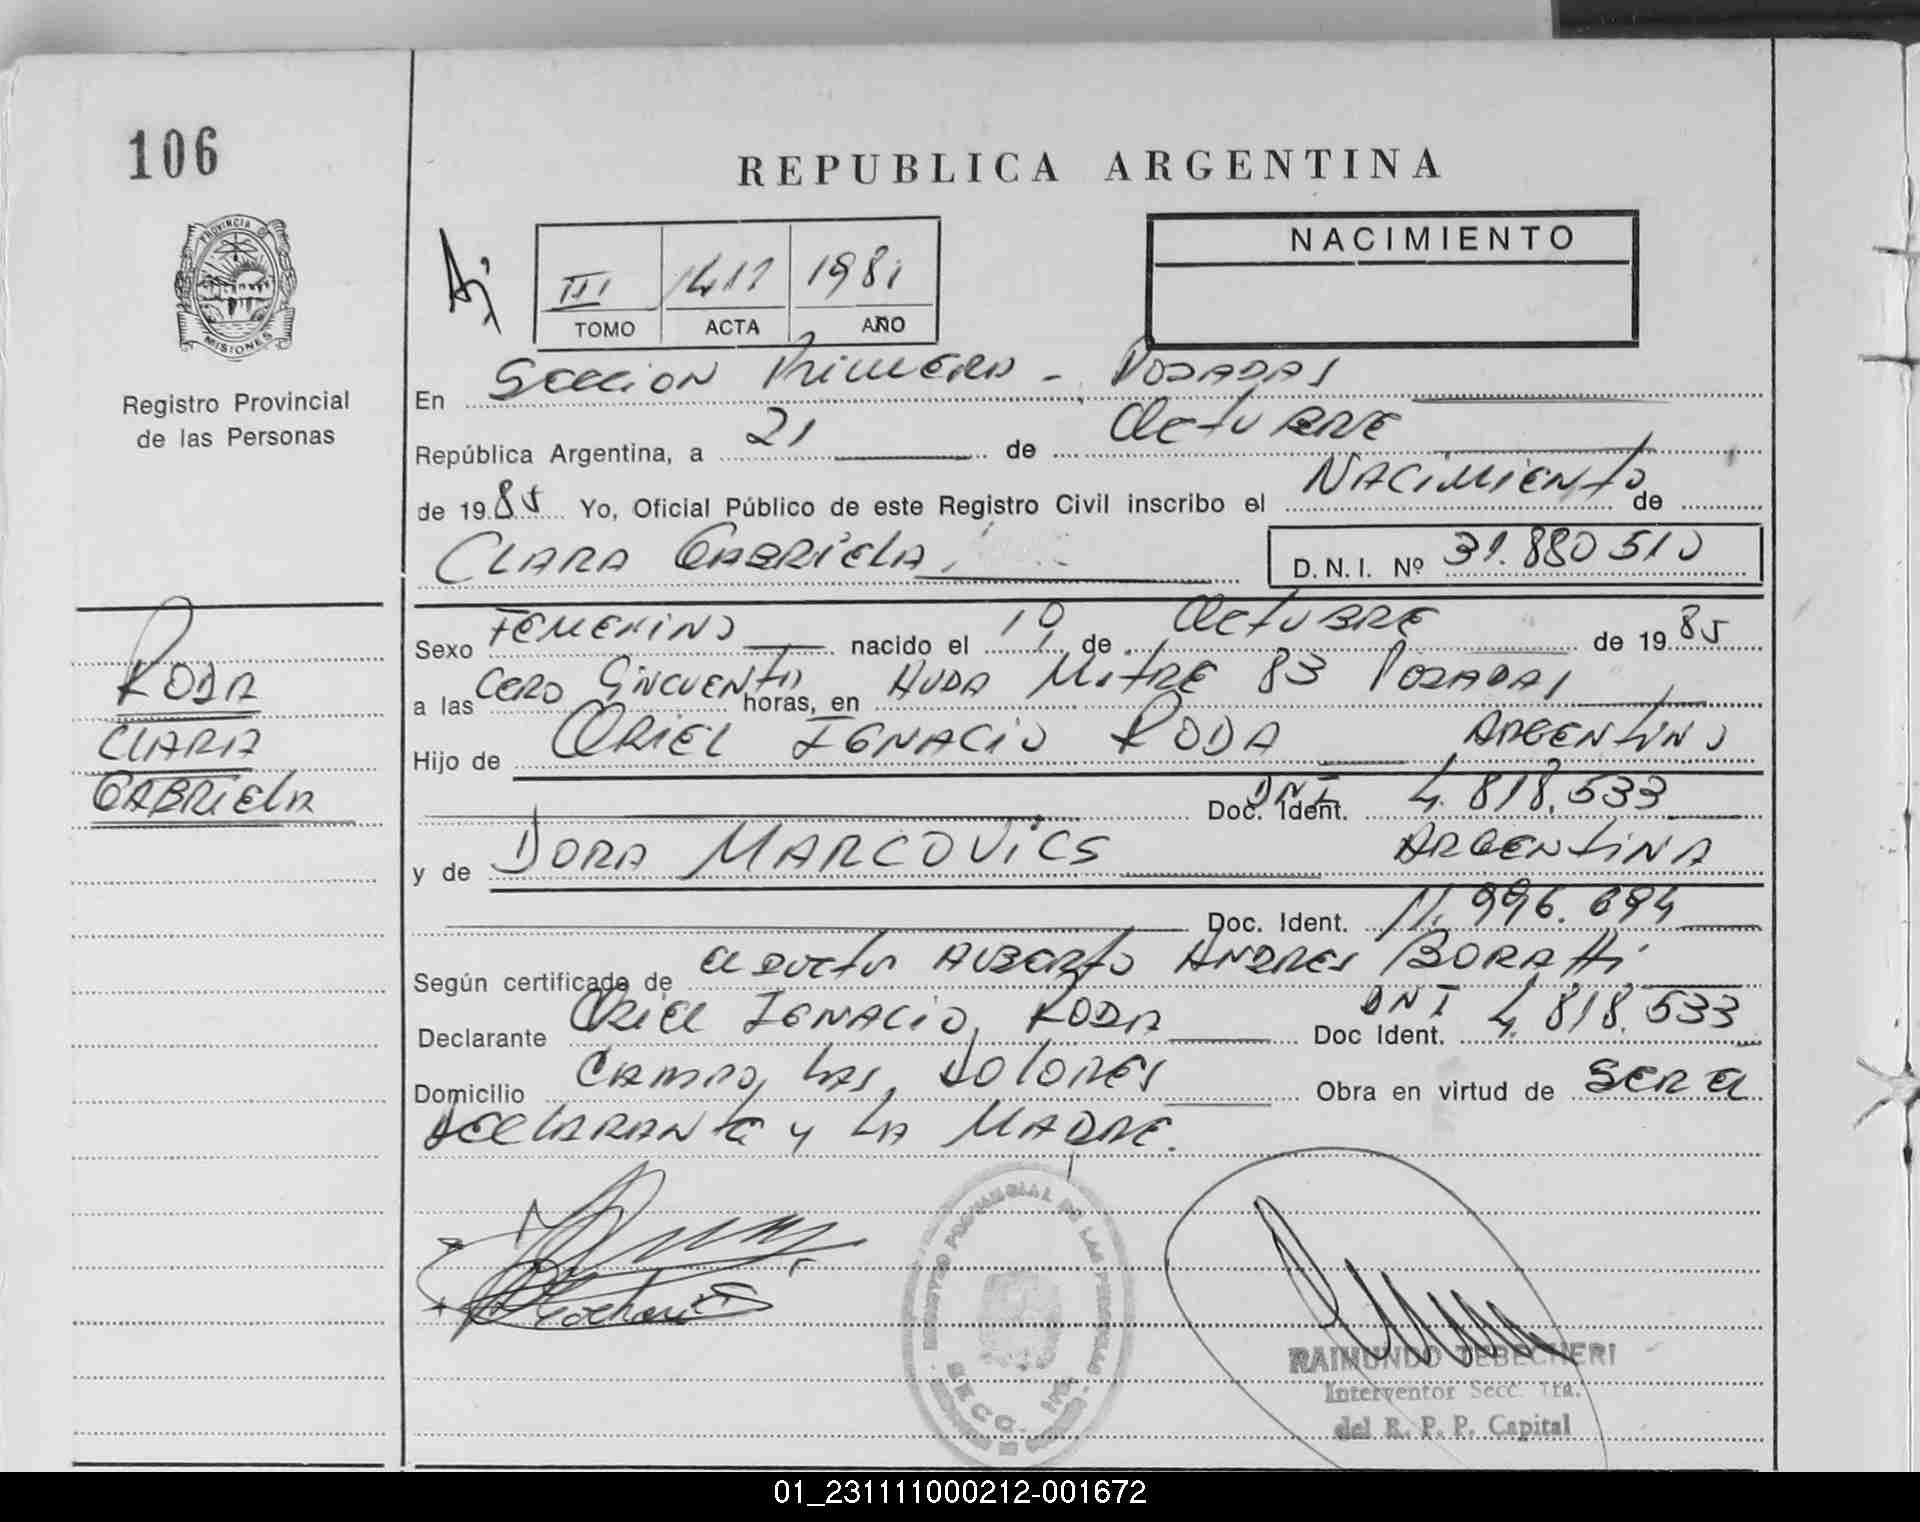 106
REPUBLICA ARGENTINA
PROVINCIA D
MISIONES
Registro Provincial
de las Personas
III 1411 1981
TOMO ACTA AÑO
NACIMIENTO
En Seccion Primera - Posadas
República Argentina, a 21 de Octubre
de 1985 Yo, Oficial Público de este Registro Civil inscribo el Nacimiento de
Clara Gabriela, D.N.I. Nº 31.880510
Sexo Femenino nacido el 10 de Octubre de 1985
a las cero cincuenta horas, en Avda Mitre 83 Posadas
Hijo de Oriel Ignacio Roda Argentino
Doc. Ident. DNI 4.818.533
y de Dora Marcovics Argentina
Doc. Ident. 11.996.694
Según certificado de el doctor Alberto Andres Boratti
Declarante Oriel Ignacio, Roda Doc Ident. DNI 4.818.533
Domicilio Las Dolores Obra en virtud de ser el
declarante y la madre.
RODA
CLARA
GABRIELA
REGISTRO PROVINCIAL DE LAS PERSONAS
SECC. 1ra.
RAIMUNDO TEBECHERI
Interventor Secc. 1ra.
del R. P. P. Capital
01_231111000212-001672